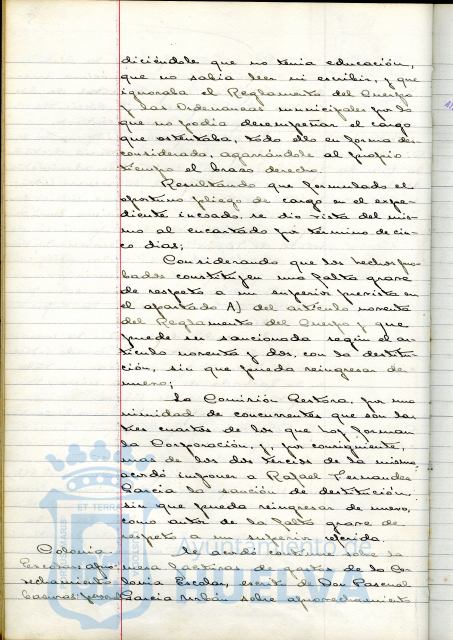 diciéndole que no tenia educación,
que no sabia leer ni escribir, y que
ignoraba el Reglamento del Cuerpo
y las Ordenanzas municipales por lo
que no podia desempeñar el cargo
que ostentaba, todo ello en forma des
considerada, agarrándole al propio
tiempo el brazo derecho.
Resultando que formulado el
oportuno pliego de cargo en el expe-
diente incoado, se dio vista del mis-
mo al encartado por término de cin-
co dias;
Considerando que los hechos pro-
bados constituyen una falta grave
de respeto a un superior prevista en
el apartado A) del articulo noventa
del Reglamento del Cuerpo y que
puede ser sancionada según el ar-
tículo noventa y dos, con la destitu-
ción, sin que pueda reingresar de
nuevo;
La Comisión Gestora, por una
nimidad de concurrentes que son las
tres cuartos de los que hoy forman
la Corporación, y, por consiguiente,
mas de los dos tercios de la misma,
acordó imponer a Rafael Fernandez
Garcia la sanción de destitución,
sin que pueda reingresar de nuevo,
como autor de la falta grave de
respeto a un superior referida.
Colonia
Escolar:
Se acordó
facturas de gastos de la Co-
lonia Escolar, escrito de Don Pascual
Garcia Urbán sobre aprovechamiento
basuras:
ET TERRA
Ayuntamiento de
HUELVA